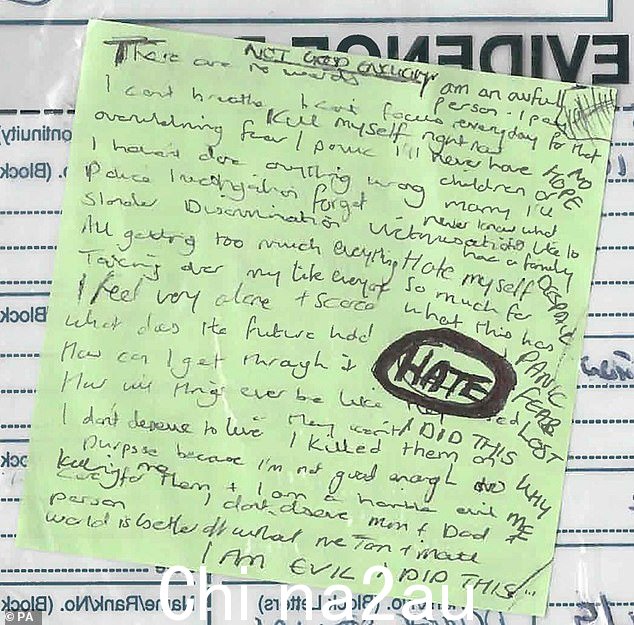 EVIDENCE
NOT GOOD ENOUGH
There are no words
I am an awful person. I pay
everyday for that
I can't breathe. I can't focus
Kill myself right now
overwhelming fear / panic I'll never have
NO
HOPE
children or
marry I'll
never know what
it's like to
have a family
I haven't done anything wrong
Police investigation forget
Slander Discrimination Victimisation
DESPAIR
All getting too much everything
Hate myself so much for
what this has
Taking over my life
I feel very alone + scared
PANIC
FEAR
LOST
What does the future hold
How can I get through it
HATE
How will things ever be like
they
I DID THIS
WHY
ME
I don't deserve to live. I killed them on
purpose because I'm not good enough to
care for them + I am a horrible evil
person
I don't deserve Mum + Dad
world is better off without me
I AM EVIL I DID THIS
Continuity)
No. (Block
(Block
(Block
ck
Name/Rank/No. (Block Letters)
(Block
Chi na2au
© PA